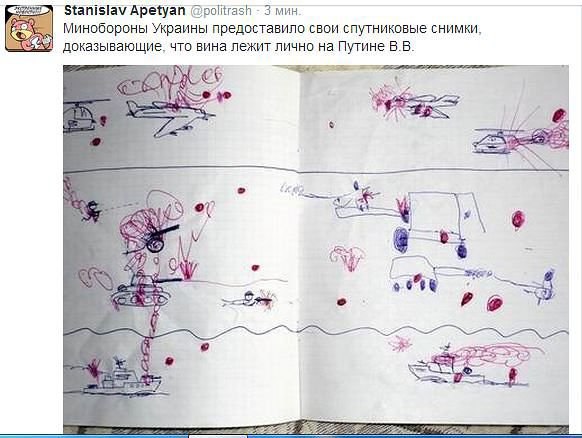 Stanislav Apetyan @politrash · 3 мин.
Минобороны Украины предоставило свои спутниковые снимки,
доказывающие, что вина лежит лично на Путине В.В.